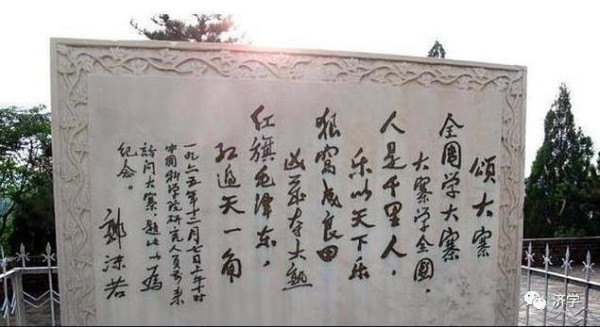 颂大寨
全国学大寨
大寨学全国，
人是千里人，
乐以天下乐
狼窝成良田
凶岁夺大熟
红旗毛泽东，
红遍天一角
一九六五年十二月七日上午十时
中国科学院研究人员来
访问大寨，题此以为
纪念。
郭沫若
济学